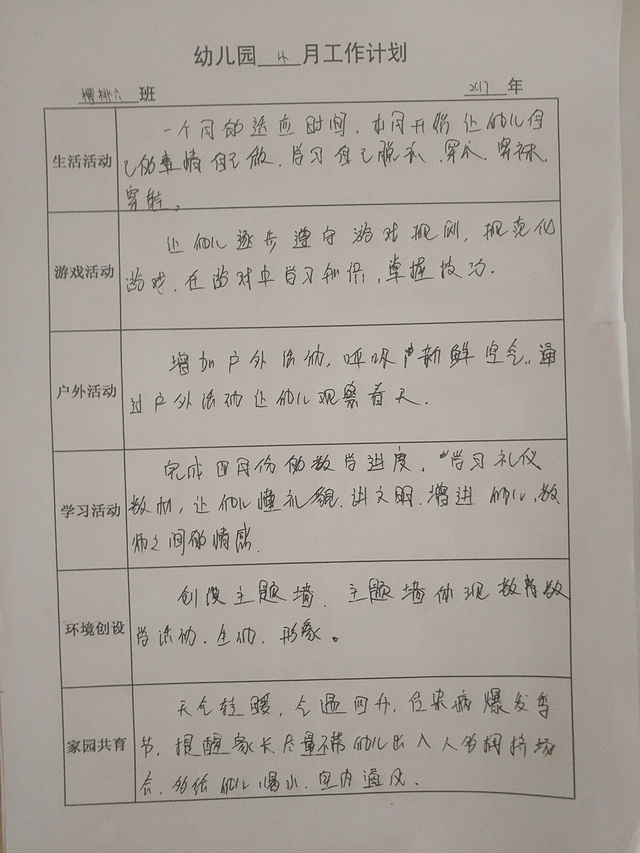 幼儿园 4 月工作计划
樱桃六 班 2017 年
生活活动
一个月的适应时间,本月开始让幼儿自
己的事情自己做,学习自己脱衣、穿衣、穿袜、
穿鞋。
游戏活动
让幼儿逐步遵守游戏规则,规范化
游戏,在游戏中学习知识,掌握技巧.
户外活动
增加户外活动,呼吸新鲜空气,通
过户外活动让幼儿观察春天.
学习活动
完成四月份的教学进度,学习礼仪
教材,让幼儿懂礼貌,讲文明,增进幼儿、教
师之间的情感.
环境创设
创设主题墙,主题墙体现教育教
学活动,生动,形象。
家园共育
天气转暖,气温回升,传染病爆发季
节,提醒家长尽量不带幼儿出入人多拥挤场
合,多给幼儿喝水,室内通风.